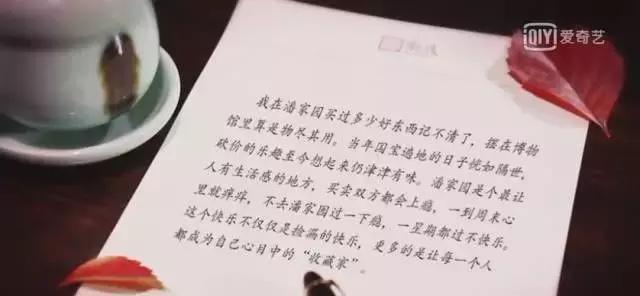 iQIYI 爱奇艺
我在潘家园买过多少好东西记不清了，摆在博物
馆里算是物尽其用。当年国宝遍地的日子恍如隔世，
砍价的乐趣至今想起来仍津津有味。潘家园是个最让
人有生活感的地方，买卖双方都会上瘾，一到周末心
里就痒痒，不去潘家园过一下瘾，一星期都过不快乐。
这个快乐不仅仅是捡漏的快乐，更多的是让每一个人
都成为自己心目中的“收藏家”。